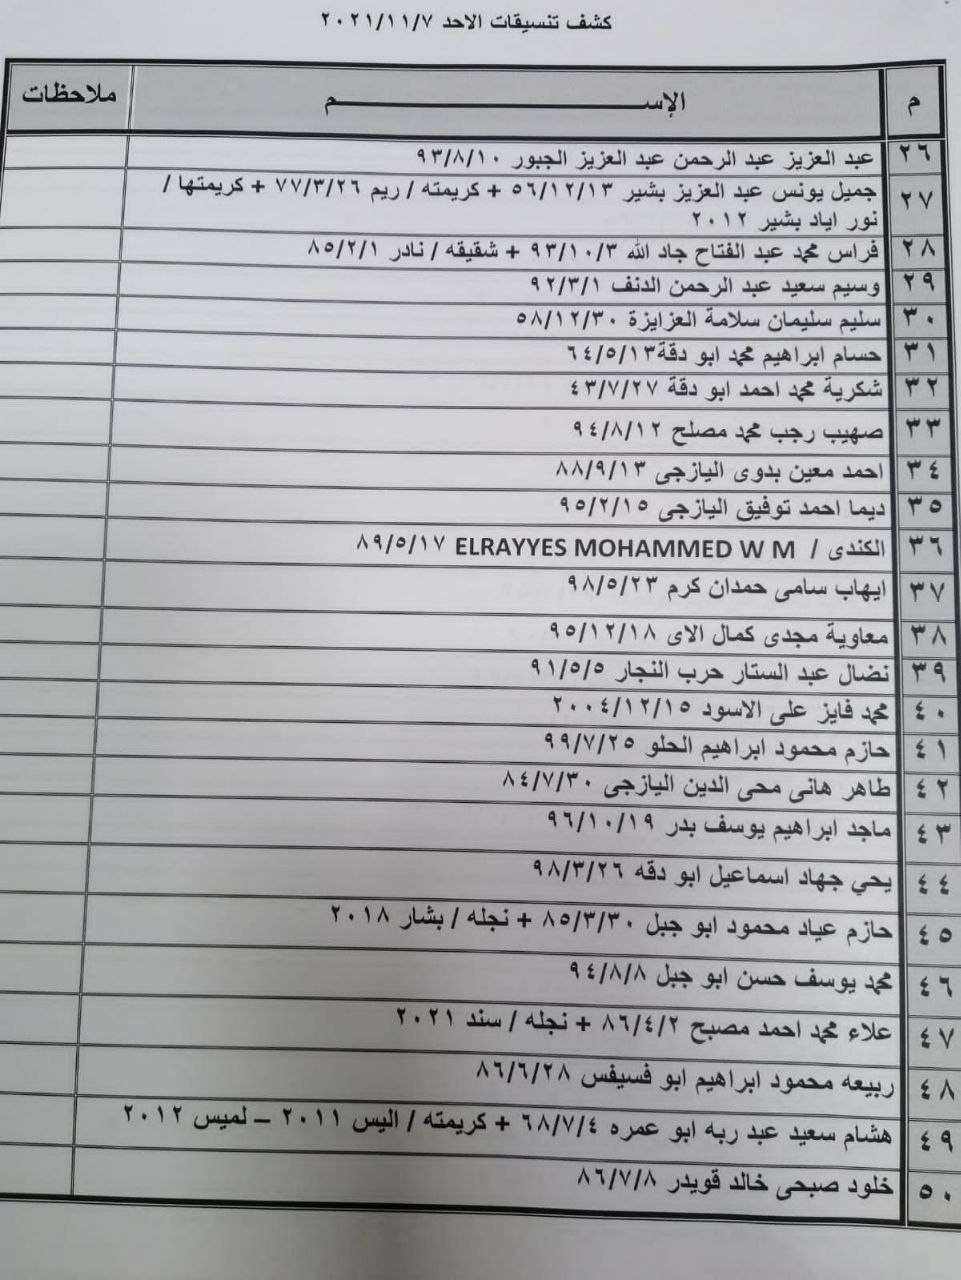 كشف تنسيقات الاحد ٢٠٢١/١١/٧
م الإســـــم ملاحظات
٢٦ عبد العزيز عبد الرحمن عبد العزيز الجبور ٩٣/٨/١٠
٢٧ جميل يونس عبد العزيز بشير ٥٦/١٢/١٣ + كريمته / ريم ٧٧/٣/٢٦ + كريمتها /
نور اياد بشير ٢٠١٢
٢٨ فراس محمد عبد الفتاح جاد الله ٩٣/١٠/٣ + شقيقه / نادر ٨٥/٢/١
٢٩ وسيم سعيد عبد الرحمن الدنف ٩٢/٣/١
٣٠ سليم سليمان سلامة العزايزة ٥٨/١٢/٣٠
٣١ حسام ابراهيم محمد ابو دقة٦٤/٥/١٣
٣٢ شكرية محمد احمد ابو دقة ٤٣/٧/٢٧
٣٣ صهيب رجب محمد مصلح ٩٤/٨/١٢
٣٤ احمد معين بدوى اليازجى ٨٨/٩/١٣
٣٥ ديما احمد توفيق اليازجى ٩٥/٢/١٥
٣٦ الكندى / ELRAYYES MOHAMMED W M ٨٩/٥/١٧
٣٧ ايهاب سامى حمدان كرم ٩٨/٥/٢٣
٣٨ معاوية مجدى كمال الاى ٩٥/١٢/١٨
٣٩ نضال عبد الستار حرب النجار ٩١/٥/٥
٤٠ محمد فايز على الاسود ٢٠٠٤/١٢/١٥
٤١ حازم محمود ابراهيم الحلو ٩٩/٧/٢٥
٤٢ طاهر هانى محى الدين اليازجى ٨٤/٧/٣٠
٤٣ ماجد ابراهيم يوسف بدر ٩٦/١٠/١٩
٤٤ يحي جهاد اسماعيل ابو دقه ٩٨/٣/٢٦
٤٥ حازم عياد محمود ابو جبل ٨٥/٣/٣٠ + نجله / بشار ٢٠١٨
٤٦ محمد يوسف حسن ابو جبل ٩٤/٨/٨
٤٧ علاء محمد احمد مصبح ٨٦/٤/٢ + نجله / سند ٢٠٢١
٤٨ ربيعه محمود ابراهيم ابو فسيفس ٨٦/٦/٢٨
٤٩ هشام سعيد عبد ربه ابو عمره ٦٨/٧/٤ + كريمته / اليس ٢٠١١ – لميس ٢٠١٢
٥٠ خلود صبحى خالد قويدر ٨٦/٧/٨